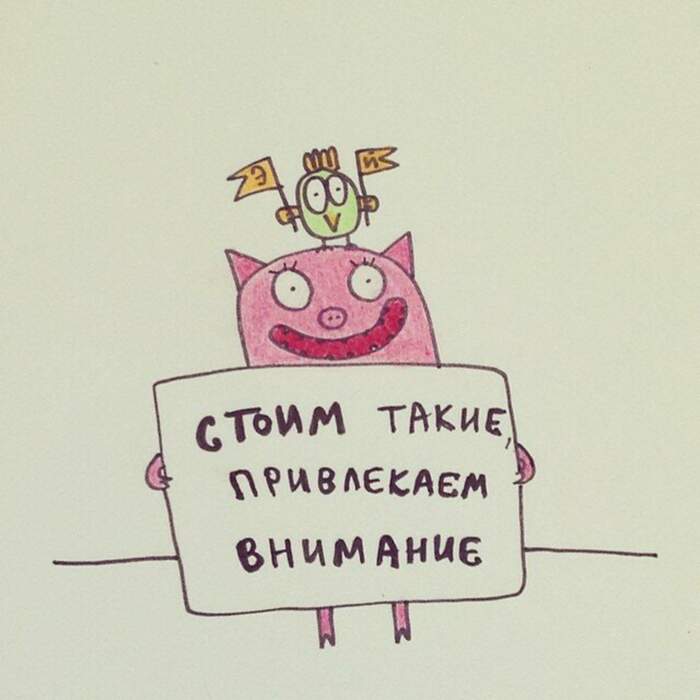 Э Й
СТОИМ ТАКИЕ,
ПРИВЛЕКАЕМ
ВНИМАНИЕ